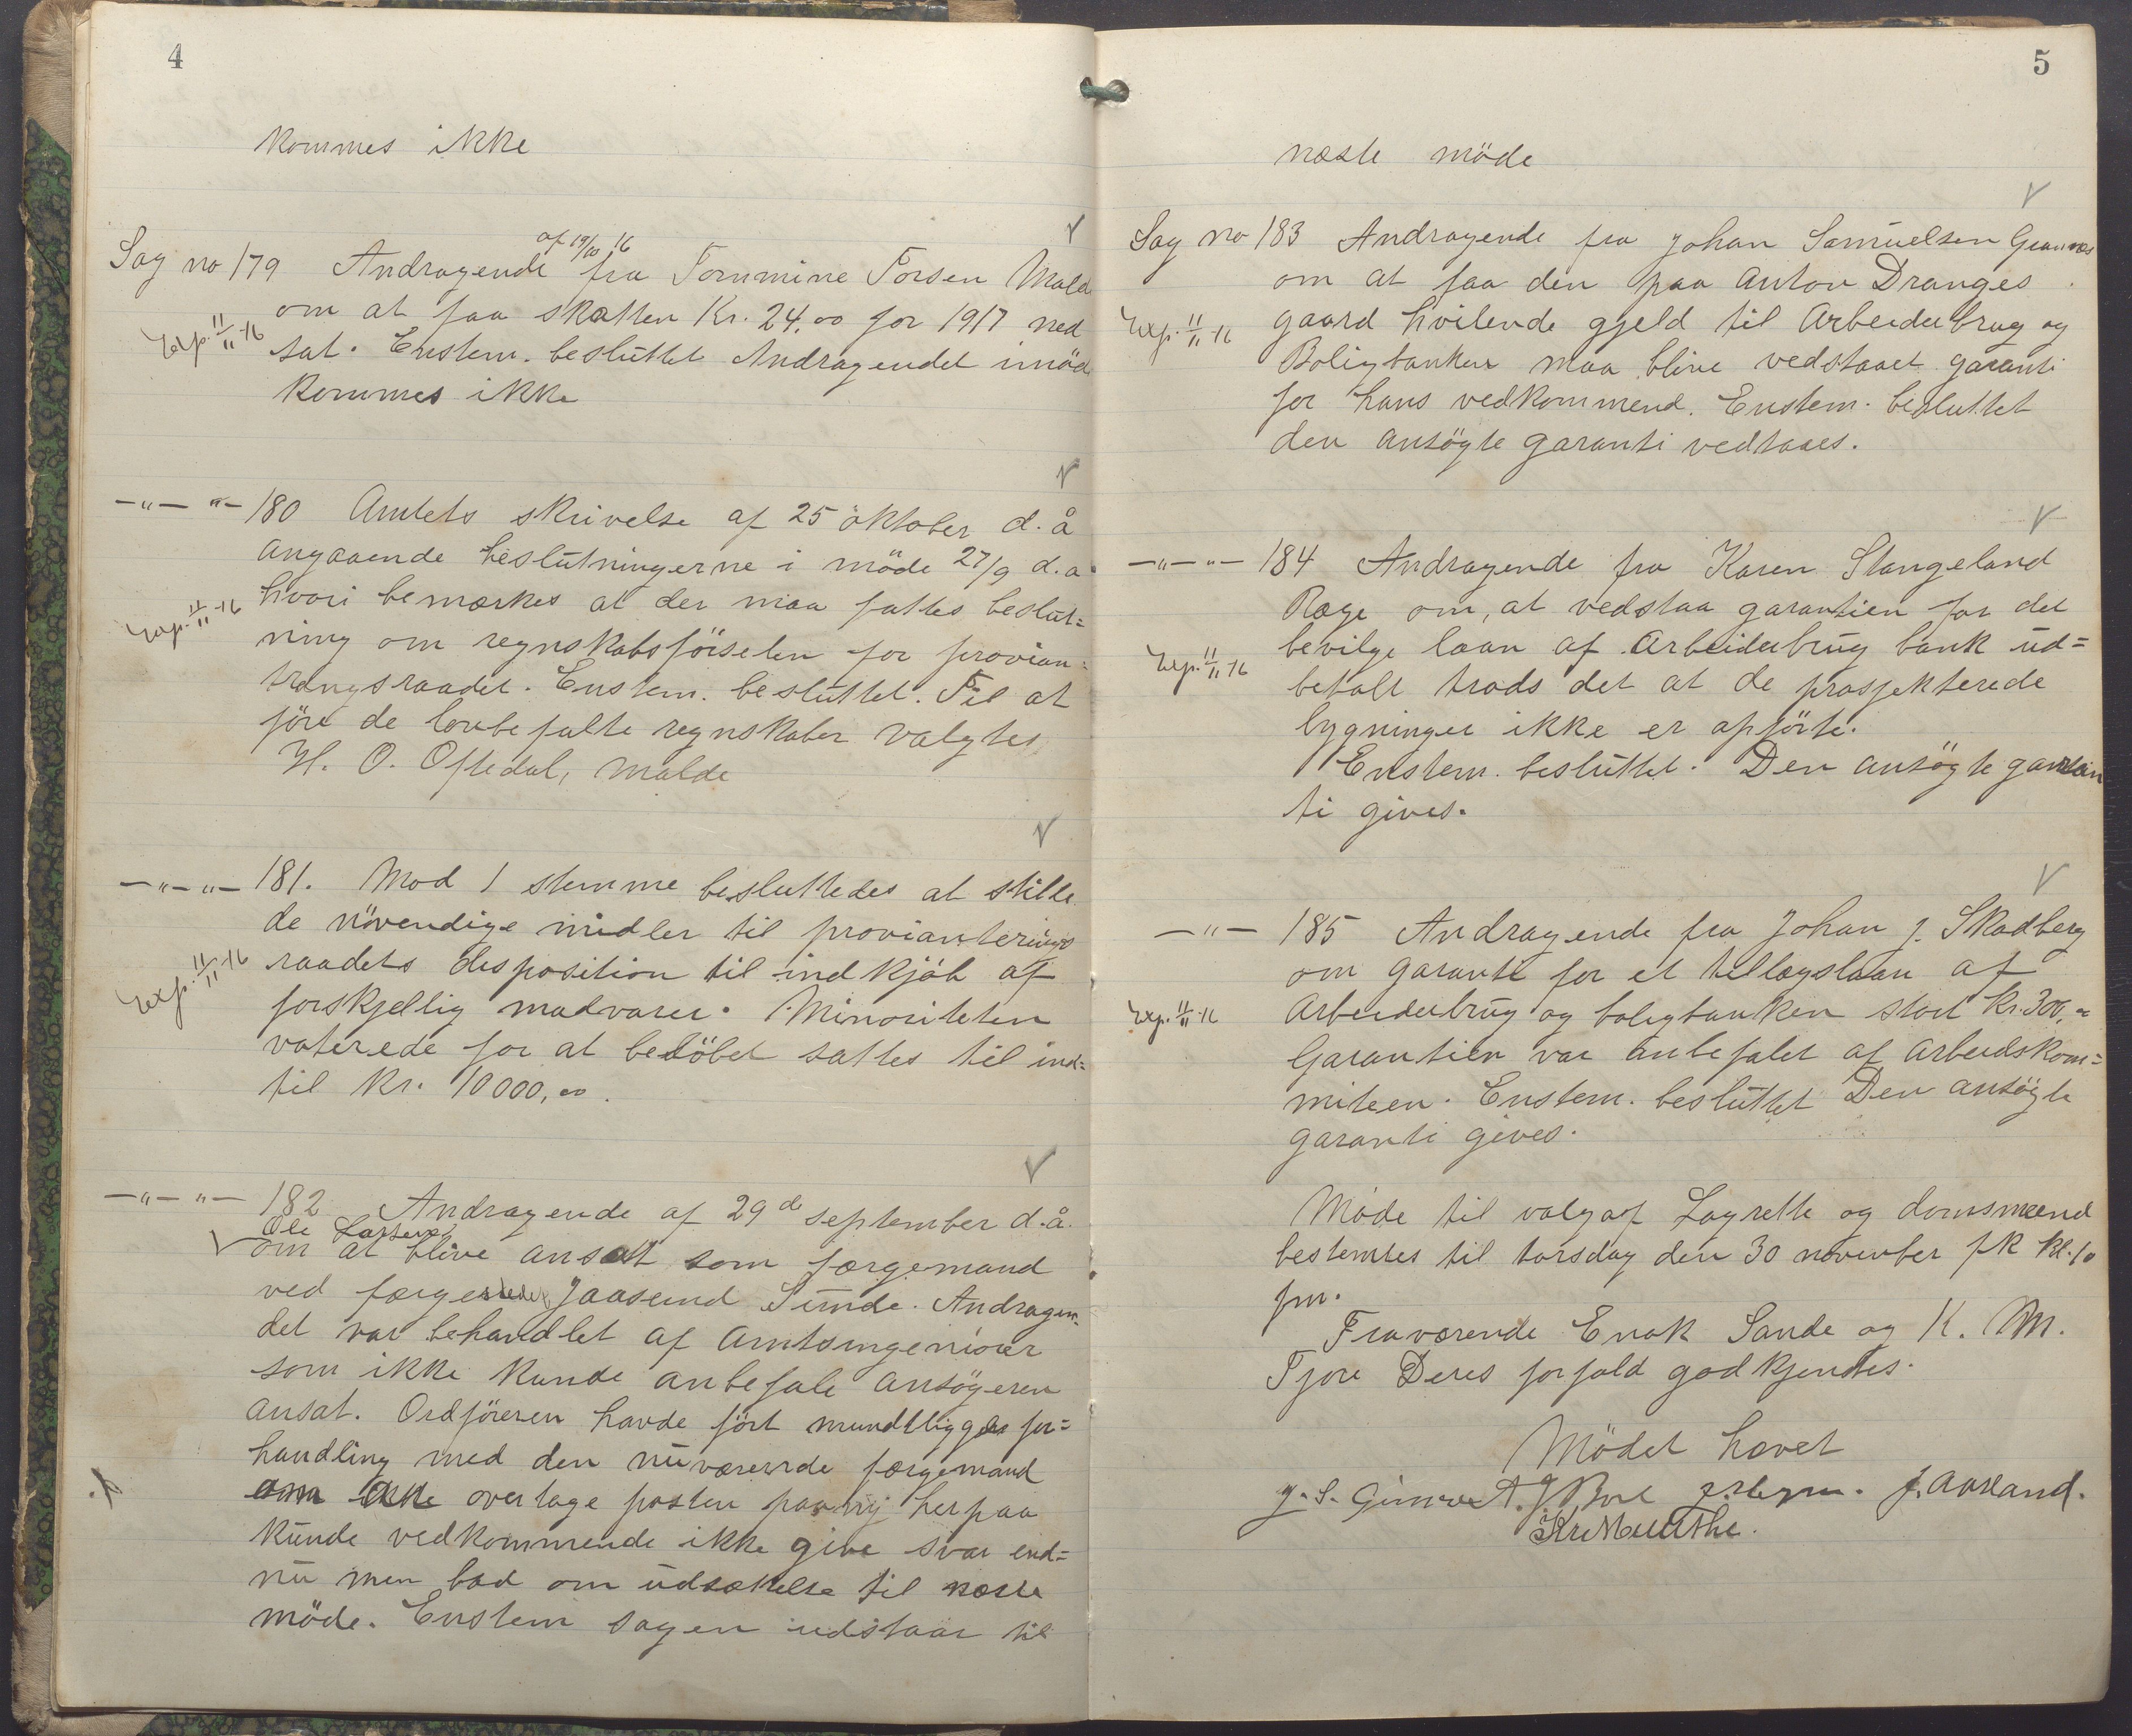 4
kommes ikke
af 19/10 16
Sag no 179 Andragende fra Tommine Torsen Malde
om at faa skatten Kr. 24.00 for 1917 ned
Exp. 11/11-16
sat. Enstem. besluttet Andragendet imöde
kommes ikke
-"- "- 180 Amtets skrivelse af 25 oktober d. å
angaaende beslutningerne i möde 27/9 d. a.
hvori bemærkes at der maa fattes beslut=
Exp. 11/11-16
ning om regnskabsförselen for provian=
tringsraadet. Enstem. besluttet. Til at
före de lovbefalte regnskaber valgtes
H. O. Oftedal, Malde
-"- "- 181. Mod 1 stemme besluttedes at stille
de növendige midler til provianterings
Exp. 11/11-16
raadets disposition til indkjöb af
forskjellig madvarer. Minoriteten
voterede for at belöbet sattes til ind=
til kr. 10000,00.
-"- "- 182 Andragende af 29de september d. å.
Ole Larsen
om at blive ansat som færgemand
ved færgestedet Jaasund Sunde. Andragen=
det var behandlet af Amtsingeniöer
som ikke kunde anbefale ansögeren
ansat. Ordföreren havde fört mundtligges for=
handling med den nuværende færgemand
om overtage posten paa nij herpaa
kunde vedkommende ikke give svar end=
nu men bad om udsættelse til næste
möde. Enstem sagen udstaar til
5
næste möde
Sag no 183 Andragende fra Johan Samuelsen Grannes
om at faa den paa Anton Dranges
Exp. 11/11-16
gaard hvilende gjeld til Arbeiderbrug og
Boligbanken maa blive vedstaaet garanti
for hans vedkommend. Enstem. besluttet
den ansögte garanti vedtaaes.
-"- "- 184 Andragende fra Karen Stangeland
Ræge om, at vedstaa garantien for det
bevilge laan af Arbeiderbrug bank ud=
Exp. 11/11-16
betalt trods det at de prosjekterede
bygninger ikke er opförte.
Enstem. besluttet. Den ansögte garan
ti gives.
-"- 185 Andragende fra Johan J. Skadberg
om garanti for et tillægslaan af
Exp. 11/11-16
Arbeiderbrug og boligbanken stort Kr. 300,-
Garantien var anbefalet af Arbeidskom=
miteen. Enstem. besluttet Den ansögte
garanti gives.
Möde til valg af Lagrette og domsmænd
bestemtes til torsdag den 30 november fk kl. 10
fm.
Fraværende Enok Sande og K. M.
Tjore Deres forfald godkjendtes.
Mödet hævet
J. Aarland.